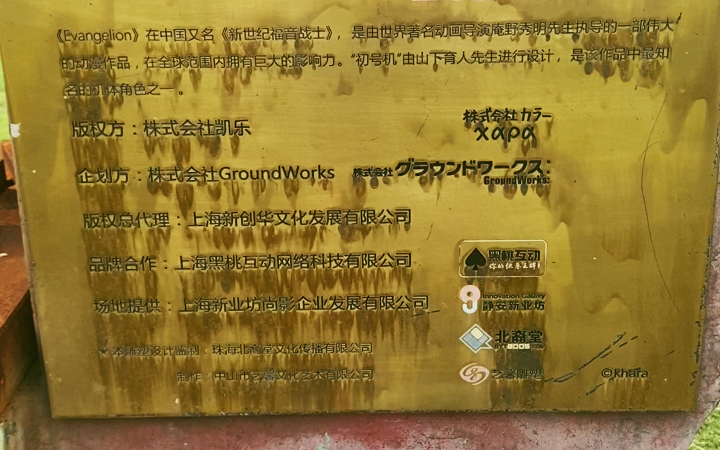 《Evangelion》在中国又名《新世纪福音战士》，是由世界著名动画导演庵野秀明先生执导的一部伟大
的动漫作品，在全球范围内拥有巨大的影响力。“初号机”由山下育人先生进行设计，是该作品中最知
名的机体角色之一。
版权方：株式会社凯乐
株式会社カラー
xapa
企划方：株式会社GroundWorks
株式会社グラウンドワークス:
GroundWorks:
版权总代理：上海新创华文化发展有限公司
品牌合作：上海黑桃互动网络科技有限公司
黑桃互动
场地提供：上海新业坊尚影企业发展有限公司
Innovation Galaxy
静安新业坊
本雕塑设计监制：珠海北裔堂文化传播有限公司
北裔堂
制作：中山市艺馨文化艺术有限公司
艺馨雕塑
©khara